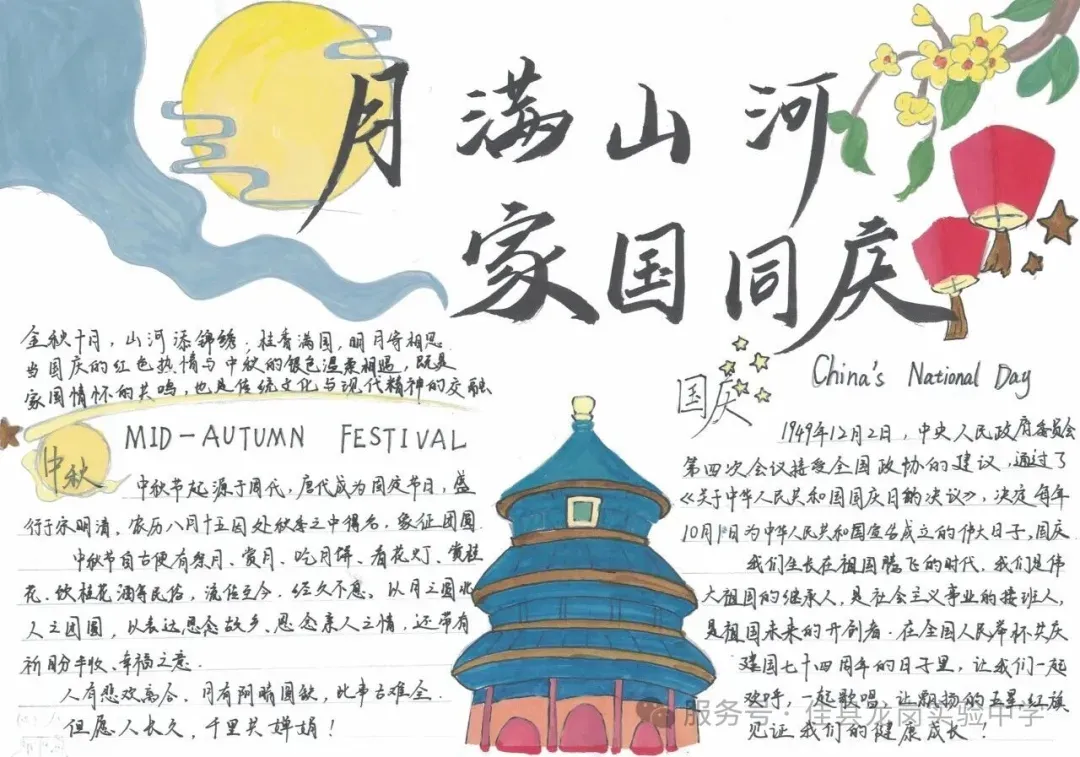 月满山河
家国同庆
金秋十月，山河添锦绣，桂香满园，明月寄相思
当国庆的红色热情与中秋的银色温柔相遇，既是
家国情怀的共鸣，也是传统文化与现代精神的交融
中秋
MID-AUTUMN FESTIVAL
中秋节起源于周代，唐代成为固定节日，盛
行于宋明清。农历八月十五因处秋季之中得名，象征团圆
中秋节自古便有祭月、赏月、吃月饼、看花灯、赏桂
花、饮桂花酒等民俗，流传至今，经久不息。以月之圆兆
人之团圆，以表达思念故乡、思念亲人之情，还带有
祈盼丰收、幸福之意.
人有悲欢离合，月有阴晴圆缺，此事古难全.
但愿人长久，千里共婵娟！
国庆
China's National Day
1949年12月2日，中央人民政府委员会
第四次会议接受全国政协的建议，通过了
《关于中华人民共和国国庆日的决议》，决定每年
10月1日为中华人民共和国宣告成立的伟大日子，国庆
我们生长在祖国腾飞的时代，我们是伟
大祖国的继承人，是社会主义事业的接班人，
是祖国未来的开创者. 在全国人民举杯共庆
建国七十四周年的日子里，让我们一起
欢呼，一起歌唱，让飘扬的五星红旗
见证我们的健康成长！
服务号：佳县龙岗实验中学